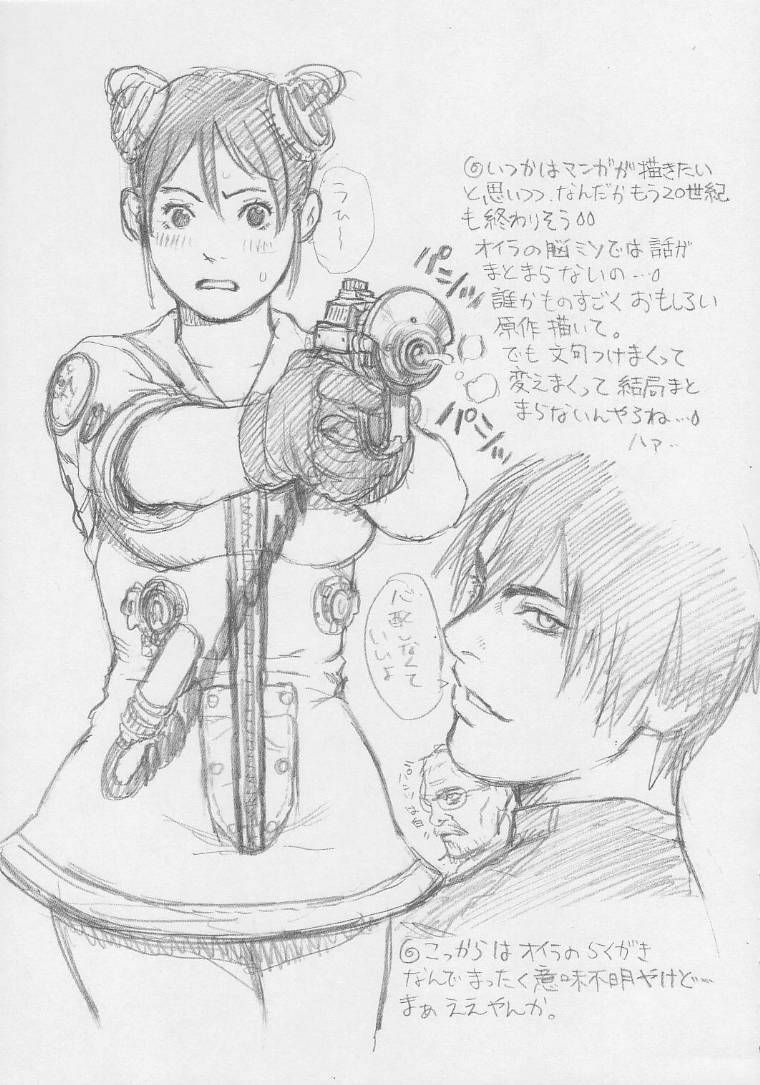 ◎いつかはマンガが描きたい
と思いつつ、なんだかもう20世紀
も終わりそう
オイラの脳ミソでは話が
まとまらないの…
誰かものすごくおもしろい
原作描いて。
でも文句つけまくって
変えまくって結局まと
まらないんやろね…
ハァ‥
うひ〜
パンッ
パンッ
心配しなくて
いいよ
◎こっからはオイラのらくがき
なんでまったく意味不明やけど…
まぁええやんか。